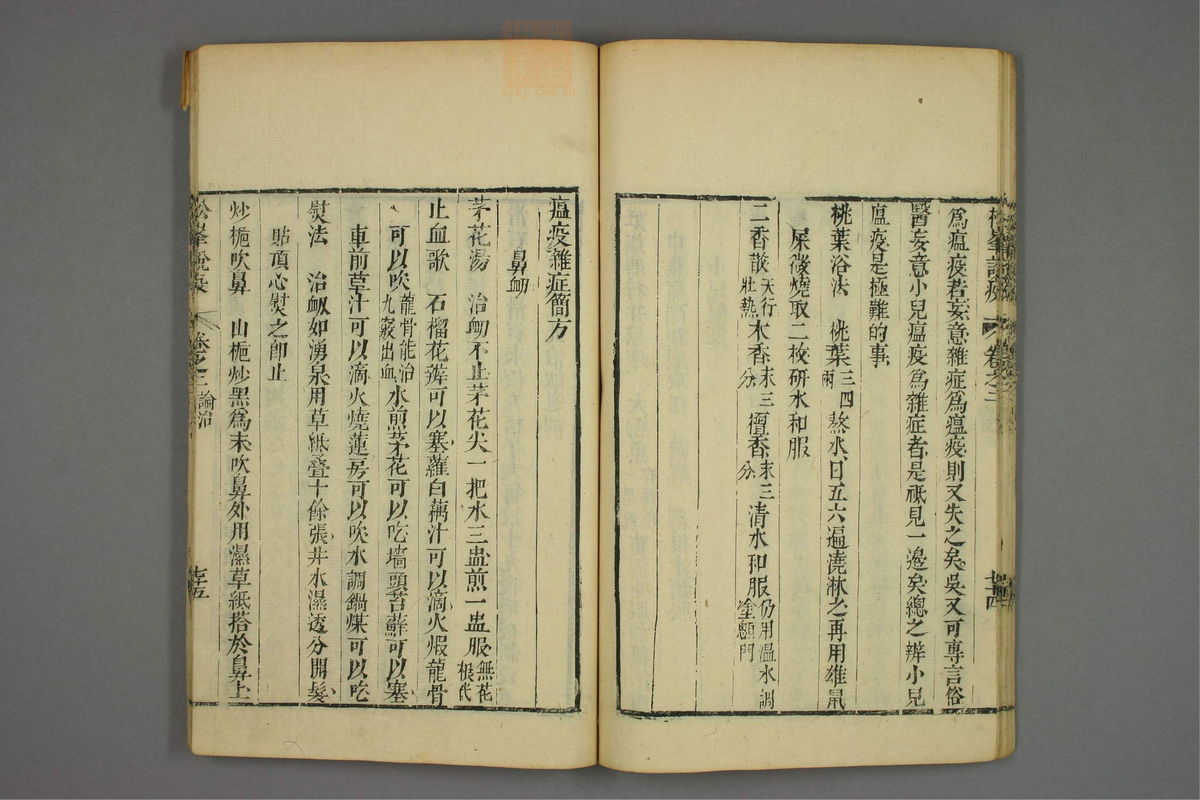 松峯說疫 卷之三 廿四
為瘟疫若妄意雜症為瘟疫則又失之矣吳又可專言俗
醫妄意小兒瘟疫為雜症者是祗見一邊矣總之辨小兒
瘟疫是極難的事
桃葉浴法 桃葉三四兩熬水日五六遍澆淋之再用雄鼠
屎微燒取二枚研水和服
二香散天行壯熱木香末三分檀香末三分清水和服仍用溫水調塗顖門
瘟疫雜症簡方
鼻衂
茅花湯 治衂不止茅花尖一把水三盅煎一盅服無花根代
止血歌 石榴花瓣可以塞蘿白藕汁可以滴火煆龍骨
可以吹龍骨能治九竅出血水煎茅花可以吃墻頭苔蘚可以塞
車前草汁可以滴火燒蓮房可以吹水調鍋煤可以吃
熨法 治衂如湧泉用草紙疊十餘張井水濕透分開髮
貼頂心熨之即止
炒梔吹鼻 山梔炒黑為末吹鼻外用濕草紙搭於鼻上
松峯說疫 卷之三 論治 廿五